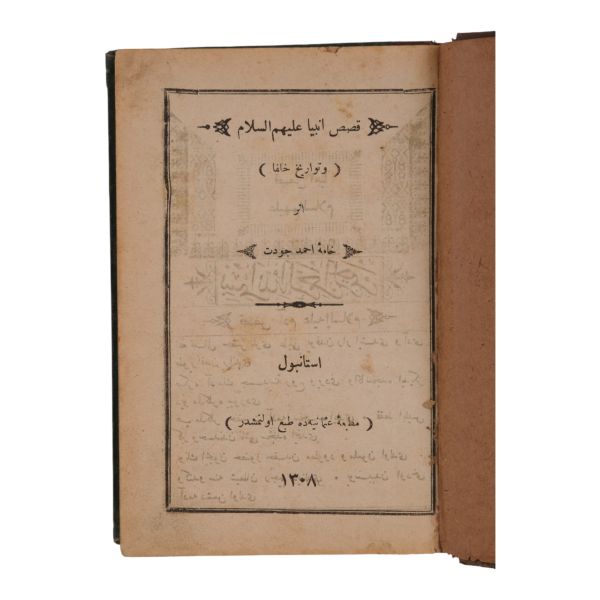 قصص انبيا عليهم السلام
( و تواريخ خلفا )
اثر
خامهٔ احمد جودت
استانبول
( مطبعهٔ عثمانيه‌ده طبع اولنمشدر )
١٣٠٨